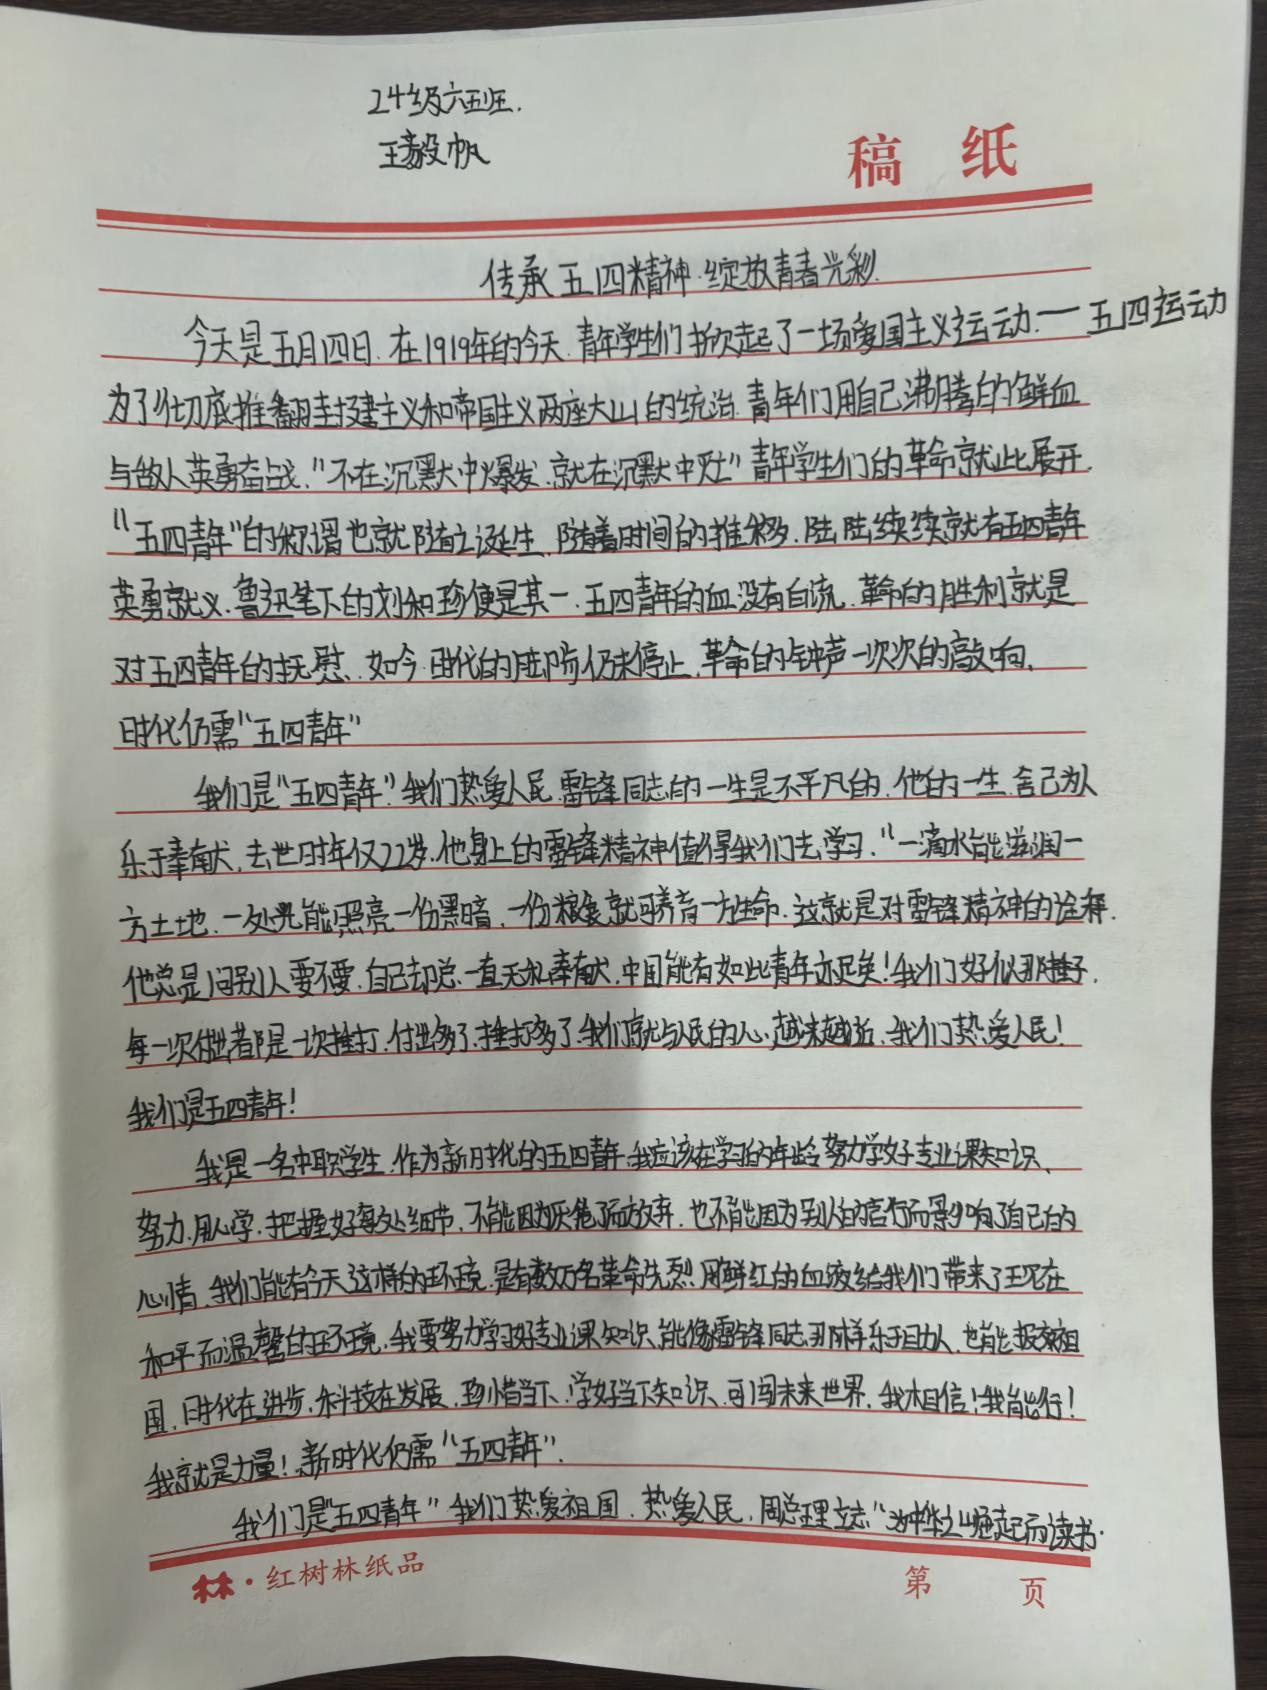 24级六五班.
王毅帆
稿 纸
传承五四精神.绽放青春光彩.
今天是五月四日.在1919年的今天.青年学生们掀起了一场爱国主义运动.一五四运动
为了彻底推翻封建主义和帝国主义两座大山的统治.青年们用自己沸腾的鲜血
与敌人英勇奋战."不在沉默中爆发.就在沉默中灭"青年学生们的革命就此展开.
"五四青年"的称谓也就随之诞生.随着时间的推移.陆陆续续就有五四青年
英勇就义.鲁迅笔下的刘和珍便是其一.五四青年的血没有白流.革命的胜利就是
对五四青年的抚慰.如今.时代的步伐仍未停止.革命的钟声一次次的敲响.
时代仍需"五四青年"
我们是"五四青年".我们热爱人民.雷锋同志的一生是不平凡的.他的一生.舍己为人
乐于奉献.去世时年仅22岁.他身上的雷锋精神值得我们去学习."一滴水能滋润一
方土地.一处光能照亮一份黑暗.一份粮食就可养育一方生命.这就是对雷锋精神的诠释.
他总是问别人要不要.自己却总一直无私奉献.中国能有如此青年亦足矣!我们好似那锤子.
每一次付出都是一次捶打.付出多了.捶打多了.我们就与人民的心越来越近.我们热爱人民!
我们是五四青年!
我是一名中职学生.作为新时代的五四青年.我应该在学习的年龄努力学好专业课知识、
努力.用心学.把握好每处细节.不能因为厌倦了而放弃.也不能因为别人的言行而影响了自己的
心情.我们能有今天这样的环境.是有数万名革命先烈.用鲜红的血液给我们带来了现在
和平而温馨的环境.我要努力学习好专业课知识.能像雷锋同志那样乐于助人.也能报效祖
国.时代在进步.科技在发展.珍惜当下.学好当下知识.可闯未来世界.我相信!我能行!
我就是力量!.新时代仍需"五四青年".
我们是"五四青年"我们热爱祖国.热爱人民.周总理立志"为中华之崛起而读书.
林·红树林纸品
第 页